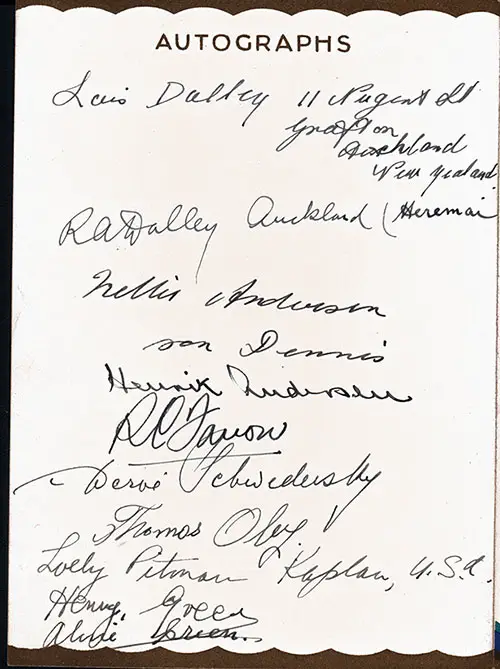 AUTOGRAPHS
Lois Dalley 11 Nugent St
Grafton
Auckland
New Zealand
R A Dalley Auckland (Heremai
Nellie Andersen
son Dennis
Henrik Andersen
R C
Thomas
Pitman Kaplan, U.S.A.
Henry Green
Green